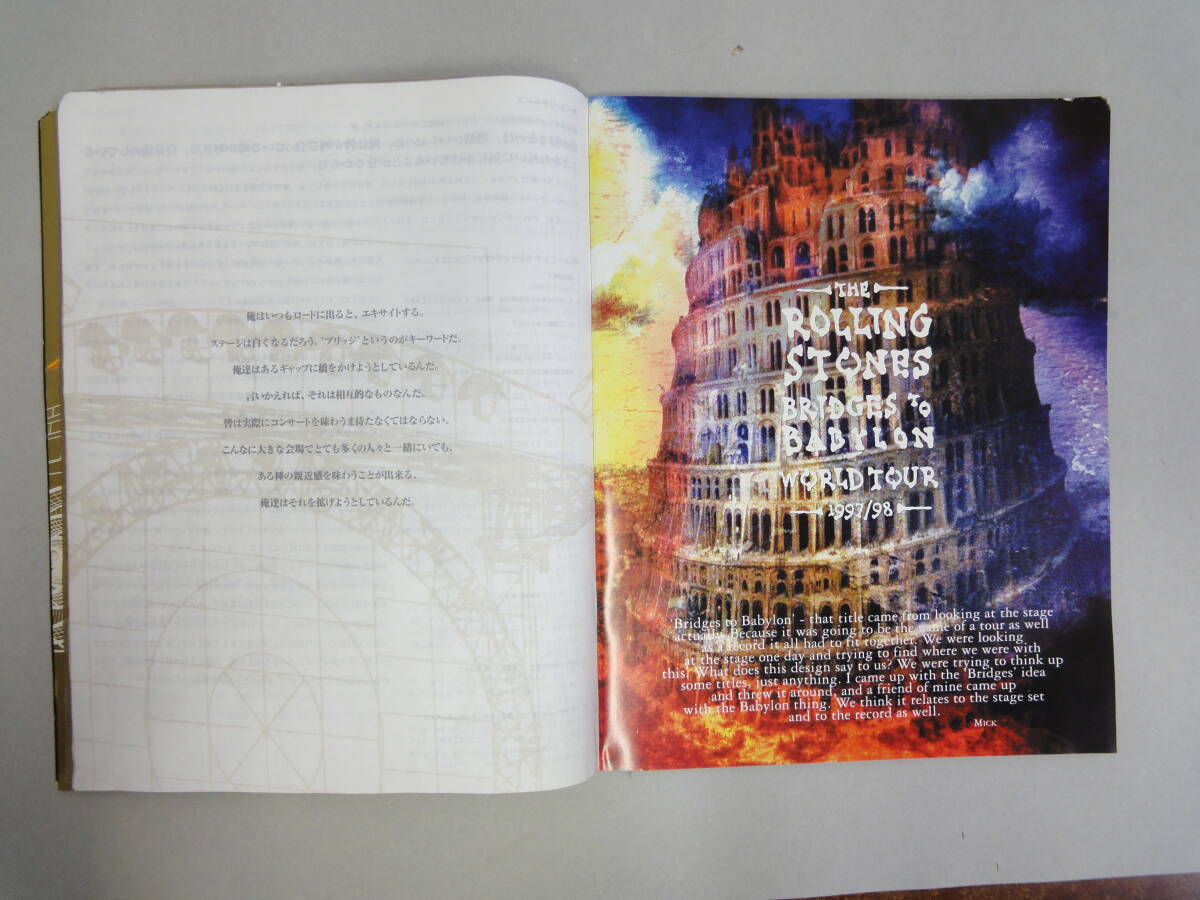 俺はいつもロードに出ると、エキサイトする。
ステージは白くなるだろう。‘ブリッジ’というのがキーワードだ。
俺達はあるギャップに橋をかけようとしているんだ。
言いかえれば、それは相互的なものなんだ。
皆は実際にコンサートを味わうま待たなくてはならない。
こんなに大きな会場でとても多くの人々と一緒にいても、
ある種の親近感を味わうことが出来る、
俺達はそれを拡げようとしているんだ。
THE
ROLLING
STONES
BRIDGES TO
BABYLON
WORLD TOUR
1997/98
'Bridges to Babylon' - that title came from looking at the stage
actually. Because it was going to be the name of a tour as well
as a record it all had to fit together. We were looking
at the stage one day and trying to find where we were with
this! What does this design say to us? We were trying to think up
some titles, just anything. I came up with the 'Bridges' idea
and threw it around, and a friend of mine came up
with the Babylon thing. We think it relates to the stage set
and to the record as well.
MICK